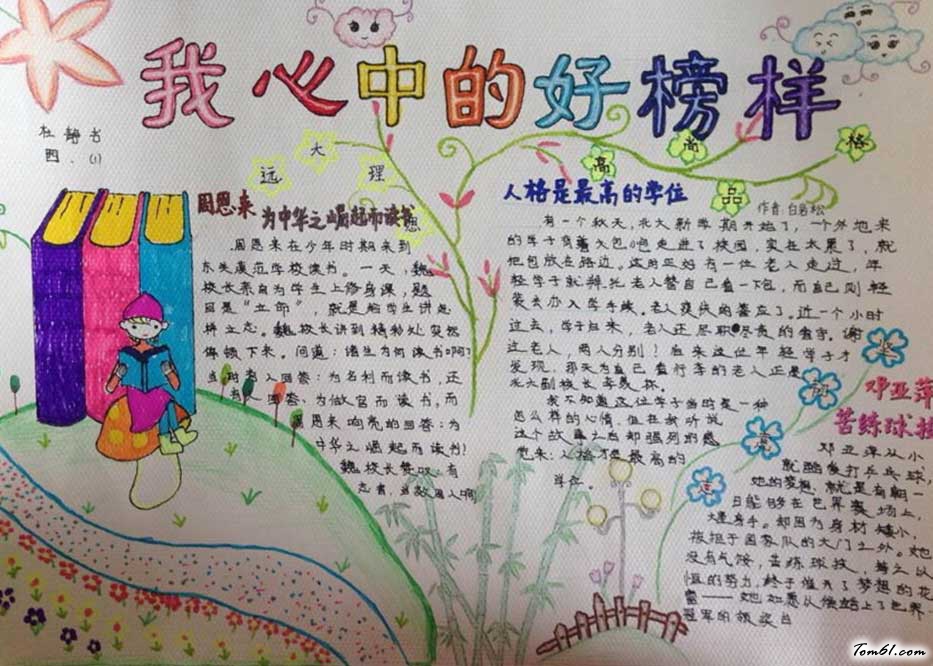 我心中的好榜样
杜静书
四.(1)
远大理
周恩来 为中华之崛起而读书
周恩来在少年时期来到
东关模范学校读书。一天,魏
校长亲自为学生上修身课,题
目是“立命”,就是给学生讲怎
样立志。魏校长讲到精彩处突然
停顿下来。问道:诸生为何读书啊?
当时有人回答:为名利而读书,还
有人回答:为做官而读书,而
周恩来响亮的回答:为
中华之崛起而读书!
魏校长赞叹:有
志者,当效周人啊
高尚品格
人格是最高的学位
作者:白岩松
有一个秋天,北大新学期开始了,一个外地来
的学子背着大包小包走进了校园,实在太累了,就
把包放在路边。这时正好有一位老人走过,年
轻学子就拜托老人替自己看一下包,而自己则轻
装去办入学手续。老人爽快的答应了。近一个小时
过去,学子归来,老人还尽职尽责的看守。谢
过老人,两人分别!后来这位年轻学子才
发现,那天为自己看行李的老人正是
北大副校长季羡林。
我不知道这位学子当时是一种
怎么样的心情,但在我听说
这个故事之后却强烈的感
觉来:人格才是最高的
学位。
坚
志
邓亚萍
苦练球技
邓亚萍从小
就酷爱打乒乓球,
她的梦想,就是有朝一
日能够在世界赛场上,
大显身手。却因为身材矮小,
被拒于国家队的大门之外。她
没有气馁,苦练球技,持之以
恒的努力,终于催开了梦想的花
蕾——她如愿以偿踏上了世界
冠军的领奖台
Tom61.com